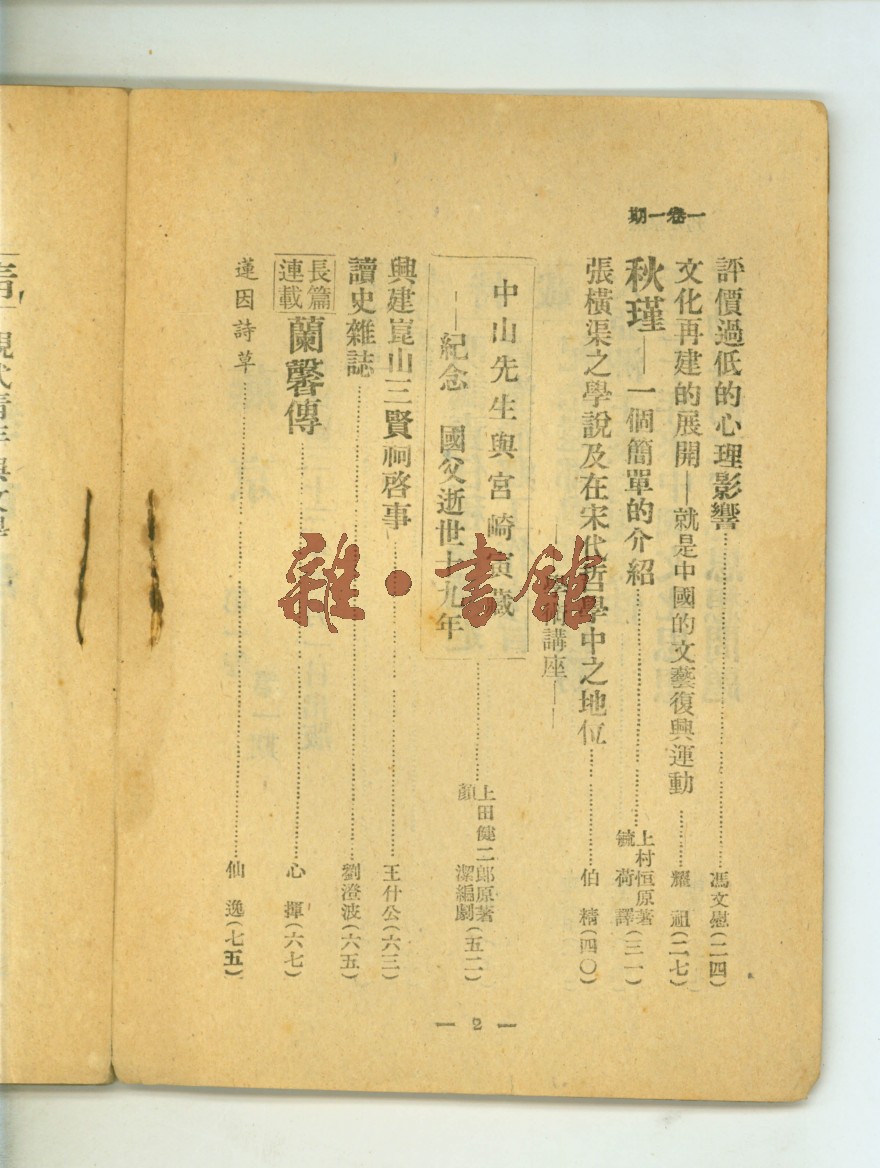 一卷一期
評價過低的心理影響 馮文慰(二四)
文化再建的展開——就是中國的文藝復興運動 耀 祖(二七)
秋瑾——一個簡單的介紹 上村恒原著
毓荷譯(三一)
張橫渠之學說及在宋代哲學中之地位 伯 精(四〇)
——學術講座——
中山先生與宮崎寅藏
——紀念 國父逝世十九年 上田健二郎原著
顏 潔編劇(五二)
興建崑山三賢祠啓事 王什公(六三)
讀史雜誌 劉澄波(六五)
長篇
連載
蘭馨傳 心 揮(六七)
蓮因詩草 仙 逸(七五)
— 2 —
雜·書館